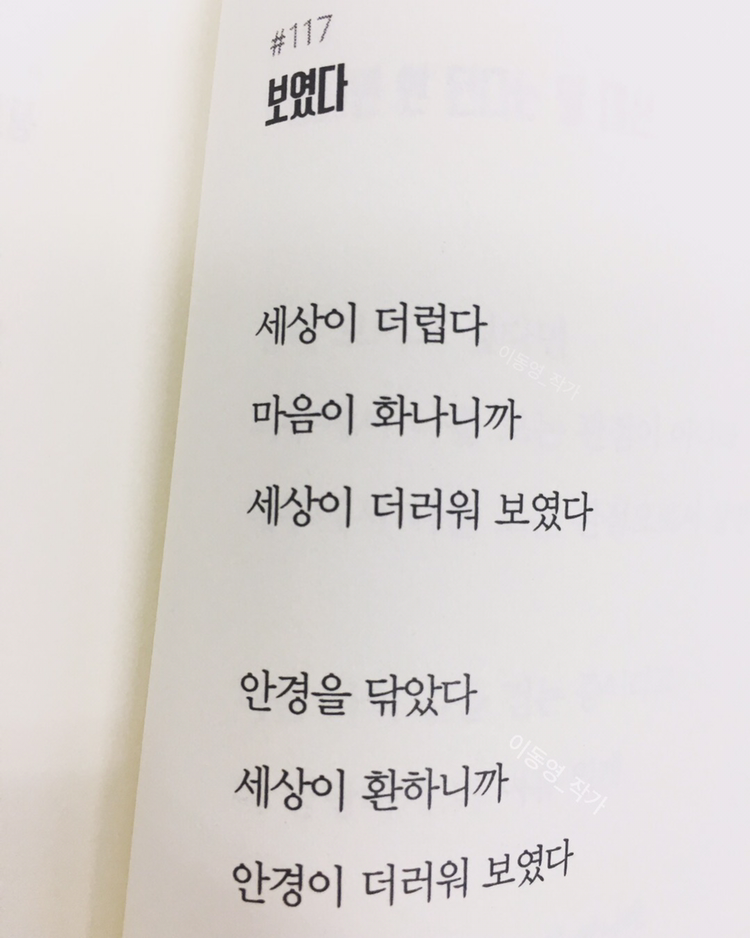 #117
보였다
세상이 더럽다
이동영_작가
마음이 화나니까
세상이 더러워 보였다
안경을 닦았다
이동영_작가
세상이 환하니까
안경이 더러워 보였다